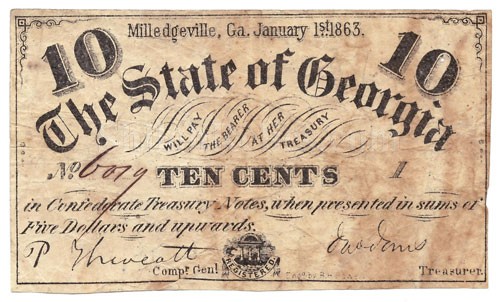 Milledgeville, Ga. January 1st. 1863.
10 10
The State of Georgia
WILL PAY THE BEARER AT HER TREASURY
No. 6019 TEN CENTS 1
in Confederate Treasury Notes, when presented in sums of
Five Dollars and upwards.
REGISTERED
Compr. Genl. Treasurer.